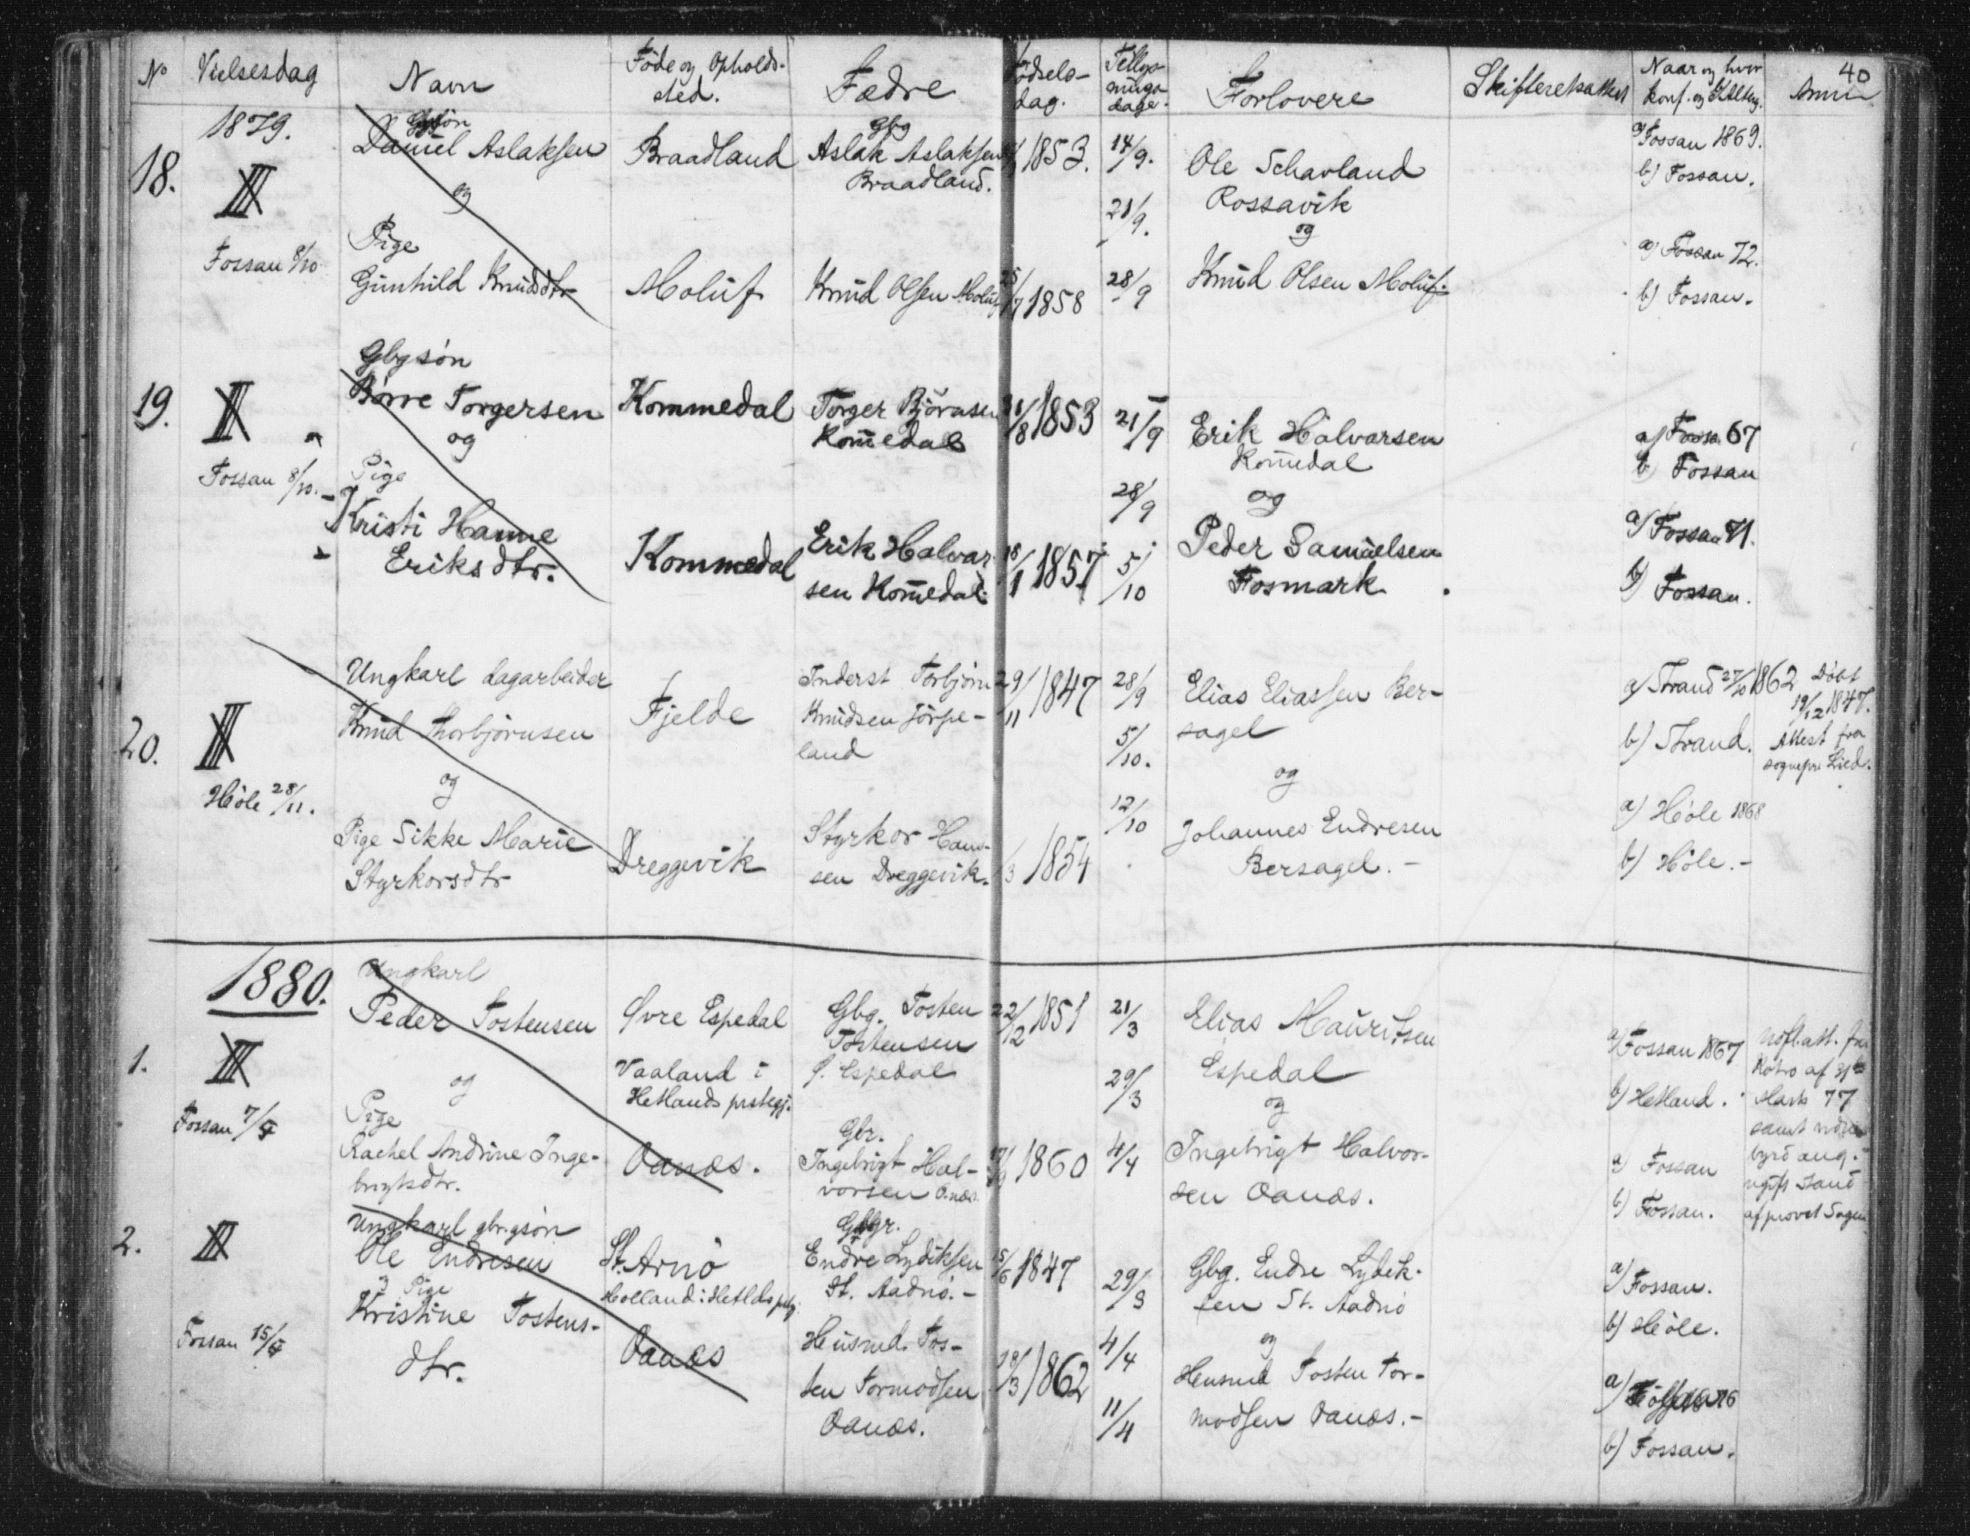 40
No Vielsesdag Navn Føde og Opholds-
sted. Fædre Fødsels-
dag. Tillys-
nings
dage. Forlovere Skifteretsattest Naar og hvor
konf. og
1879.
18.
III
Fossan 8/10
Gbgsøn
Daniel Aslaksen
og
Pige
Gunhild Knudsdtr
Braadland
Moluf
Gbg
Aslak Aslaksen
Braadland.
Knud Olsen Moluf
1853.
25/7 1858
14/9.
21/9.
28/9
Ole Schavland
Rossavik
og
Knud Olsen Moluf.
a) Fossan 1869.
b) Fossan.
a) Fossan 72.
b) Fossan.
19.
III
Fossan 8/10.
Gbgsøn
Børre Torgersen
og
Pige
Kristi Hanne
Eriksdtr.
Kommedal
Kommedal
Torger Bjørnsen
Kom̄edal
Erik Halvar
sen Kom̄edal
1853
18/1 1857
21/9
28/9
5/10
Erik Halvarsen
Kom̄edal
og
Peder Samuelsen
Fosmark
a) Fossa. 67
b) Fossan
a) Fossan 71.
b) Fossan.
20.
III
Høle 28/11.
Ungkarl dagarbeider
Knud Thorbjørnsen
og
Pige Sikke Marie
Styrkorsdtr
Fjelde
Dreggevik
Inderst Torbjørn
Knudsen Jørpe-
land
Styrkor Han-
sen Dreggevik.
29/11 1847
1854
28/9
5/10.
12/10
Elias Eliassen Ber-
sagel
og
Johannes Endresen
Bersagel. -
a) Strand 27/10 1862
b) Strand.
a) Høle 1868
b) Høle. -
Døbt
19/12 1847.
Attest fra
sognepr. Lied.
1880.
1.
III
Fossan 7/4
Ungkarl
Peder Tostensen
og
Pige
Rachel Andrine Inge-
brigtsdtr.
Øvre Espedal
Vaaland i
Hetlands prstegj.
Oanæs.
Gbg. Tosten
Tostensen
Ø. Espedal
Gbr.
Ingebrigt Hal-
vorsen Oanæs.
22/12 1851
1860
21/3
29/3
4/4
Elias Mauritsen
Espedal
og
Ingebrigt Halvor-
sen Oanæs.
a) Fossan 1867
b) Hetland.
a) Fossan
b) Fossan.
af 31te
Marts 77
samt
2.
III
Fossan 15/4
Ungkarl gbr.gsøn
Ole Endresen
og Pige
Kristine Tostens-
dtr.
St. Arnø
Holland i Hetlds
Oanæs
Endre Lydiksen
St. Aadnø. -
Husmd. Tos-
ten Tormodsen
Oanæs.
15/6 1847
1862
29/3
4/4
11/4
Gbg. Endre Lydik-
sen St. Aadnø
og
Husmd Tosten Tor-
modsen Oanæs. -
a) Fossan.
b) Høle.
a)
b) Fossan.